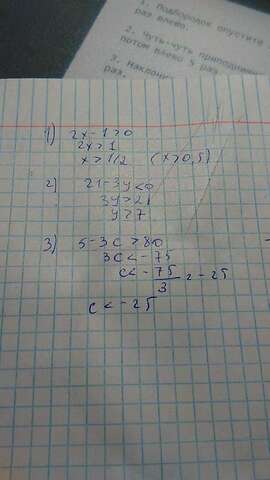 1. Подбородок опустите
раз влево.
2. Чуть-чуть приподними
потом влево 5 раз
3. Наклони
раз.
1) 2x-1>0
2x>1
x>1/2 (x>0,5)
2) 21-3y<0
3y>21
y>7
3) 5-3c>80
3c<-75
c<-75/3=-25
c<-25